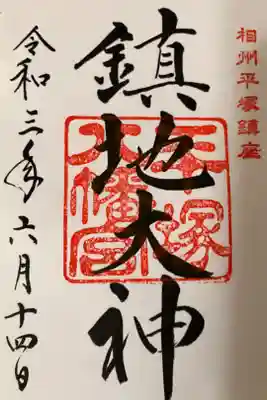 相州平塚鎮座
鎮地大神
平塚
八幡宮
令和三年六月十四日